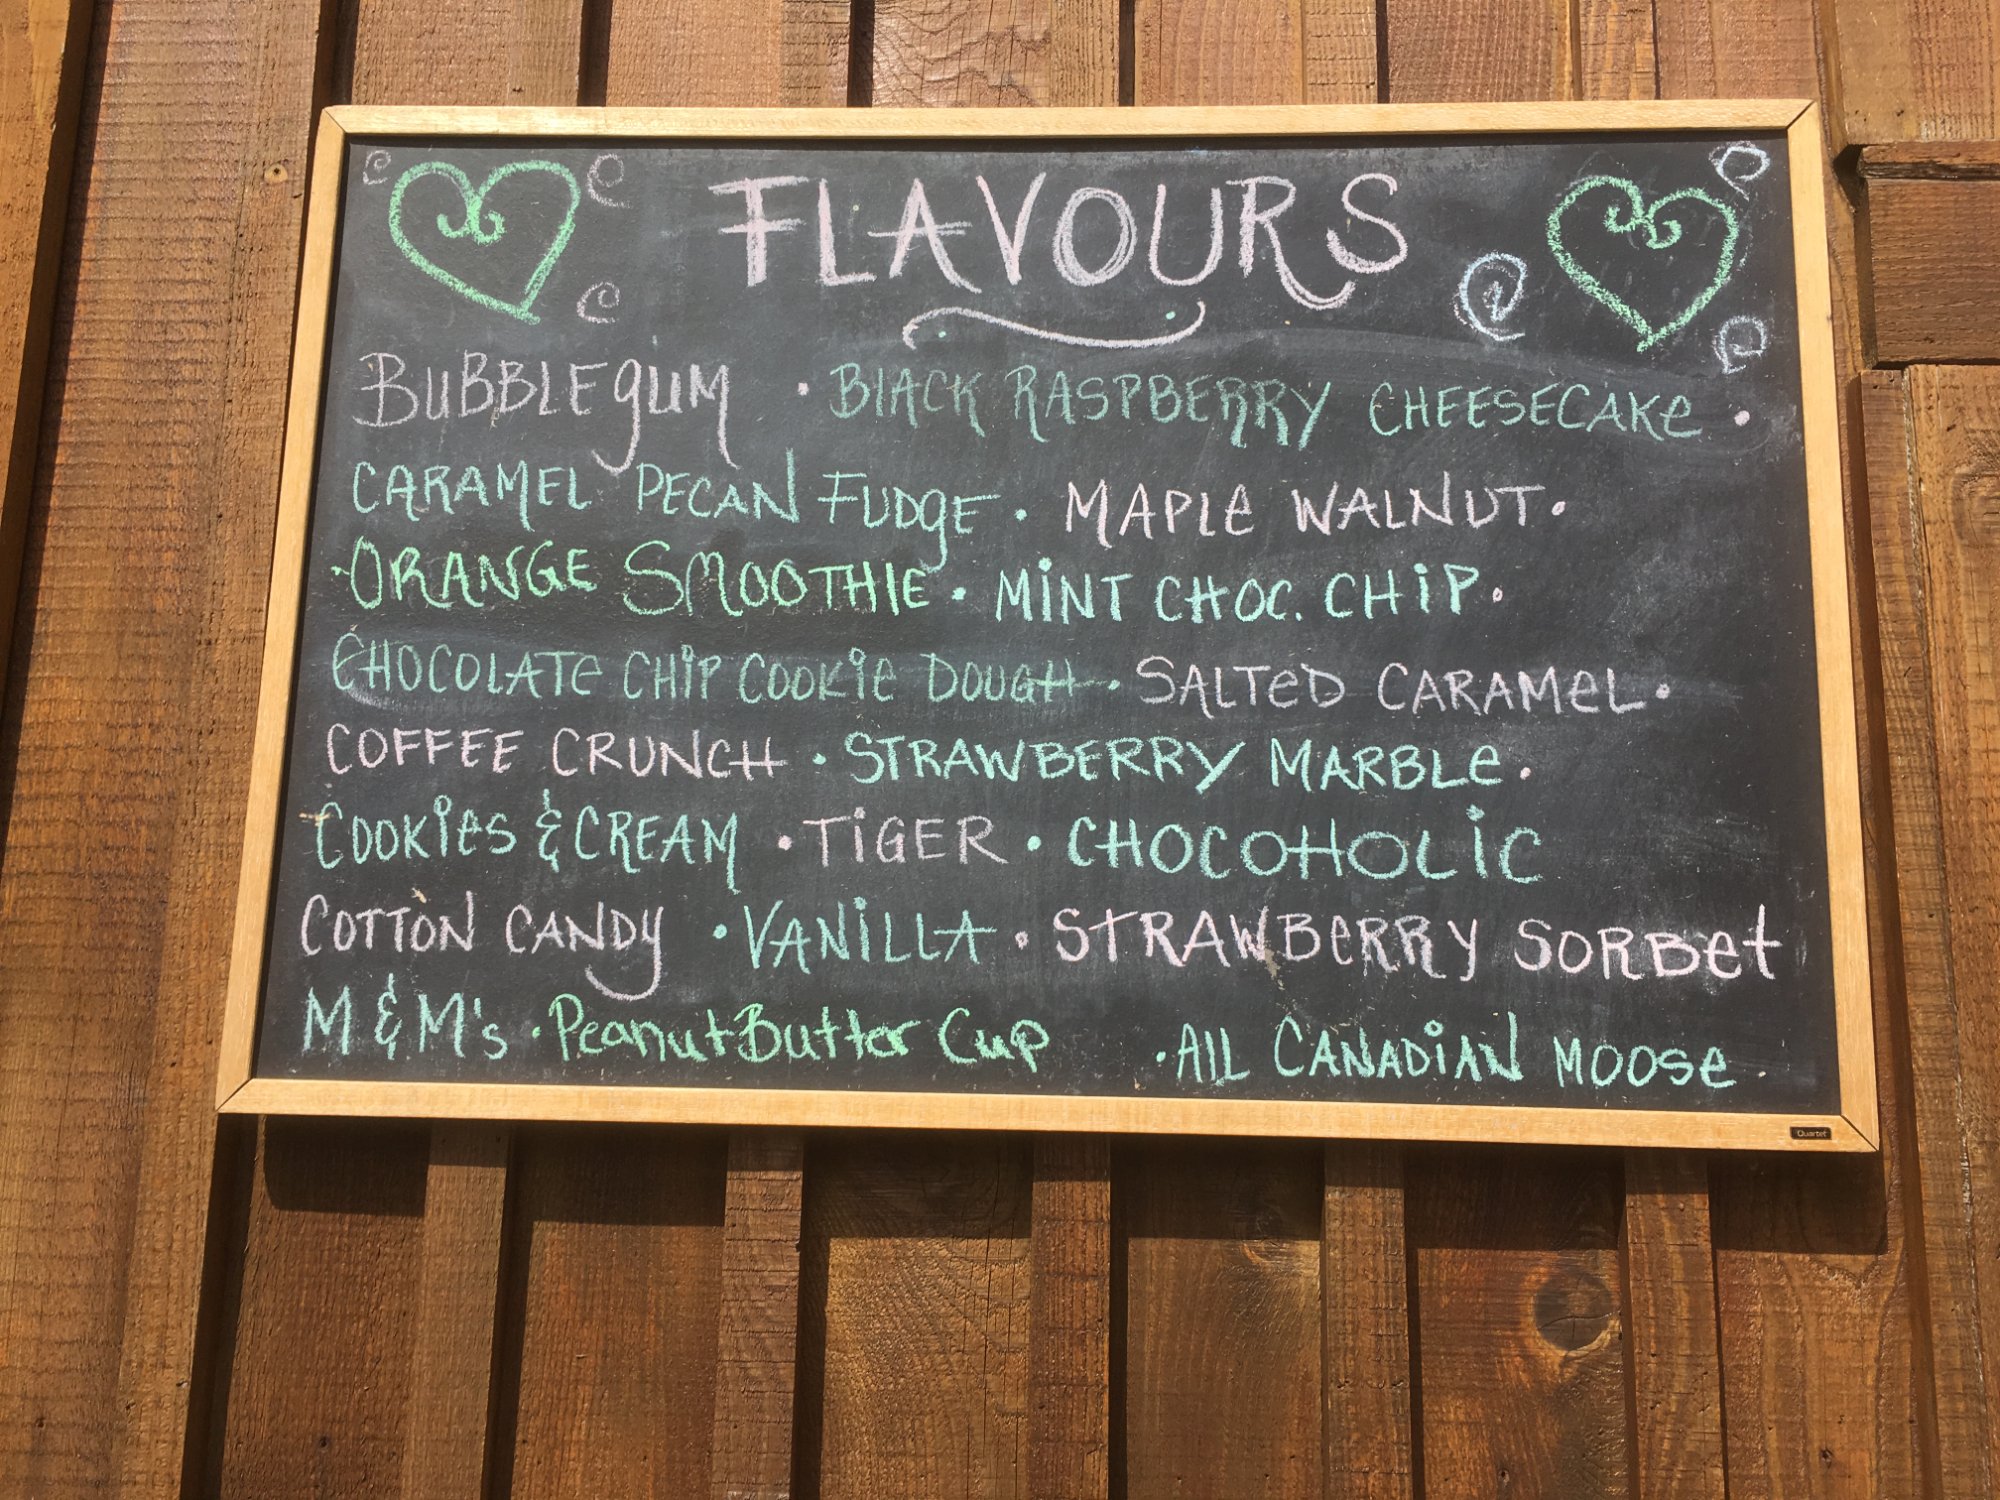 FLAVOURS
BUBBLEgUM · BlACK RASPBERRY CHEESECAKe ·
CARAMEL PECAN FUDgE · MAPLe WALNUT ·
· ORANGE SMOOTHIE · MiNT CHOC. CHiP ·
CHOCOLATe CHiP COOKie DOUGH · SALTeD CARAMeL ·
COFFEE CRUNCH · STRAWBERRY MARBLe .
COOKies & CREAM · TiGER · CHOCOHOLiC
COTTON CANDY · VANiLLA · STRAWBeRRY SORBet
M & M's · Peanut Butter Cup · AlL CANADiAN MOOSe
Quartet